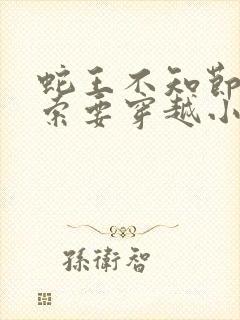 蛇王不知節
索要穿越小
孫衛智